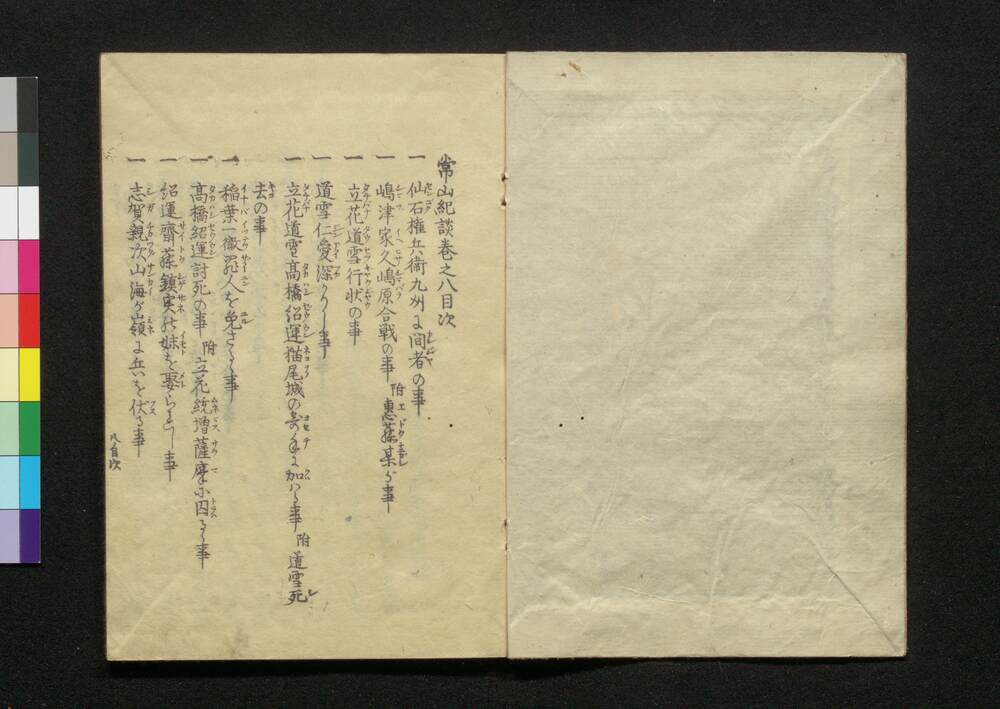 常山紀談巻之八目次
一 仙石権兵衛九州に間者の事
一 嶋津家久嶋原合戦の事 附 恵藤某が事
一 立花道雪行状の事
一 道雪仁愛深かりし事
一 立花道雪高橋紹運猫尾城の寄手に加はる事 附 道雪死
去の事
一 稲葉一徹罪人を免さるゝ事
一 高橋紹運討死の事 附 立花統増薩摩に囚るゝ事
一 紹運齋藤鎮実の妹を娶られし事
一 志賀親次山海が嶺に兵を伏る事
八目次